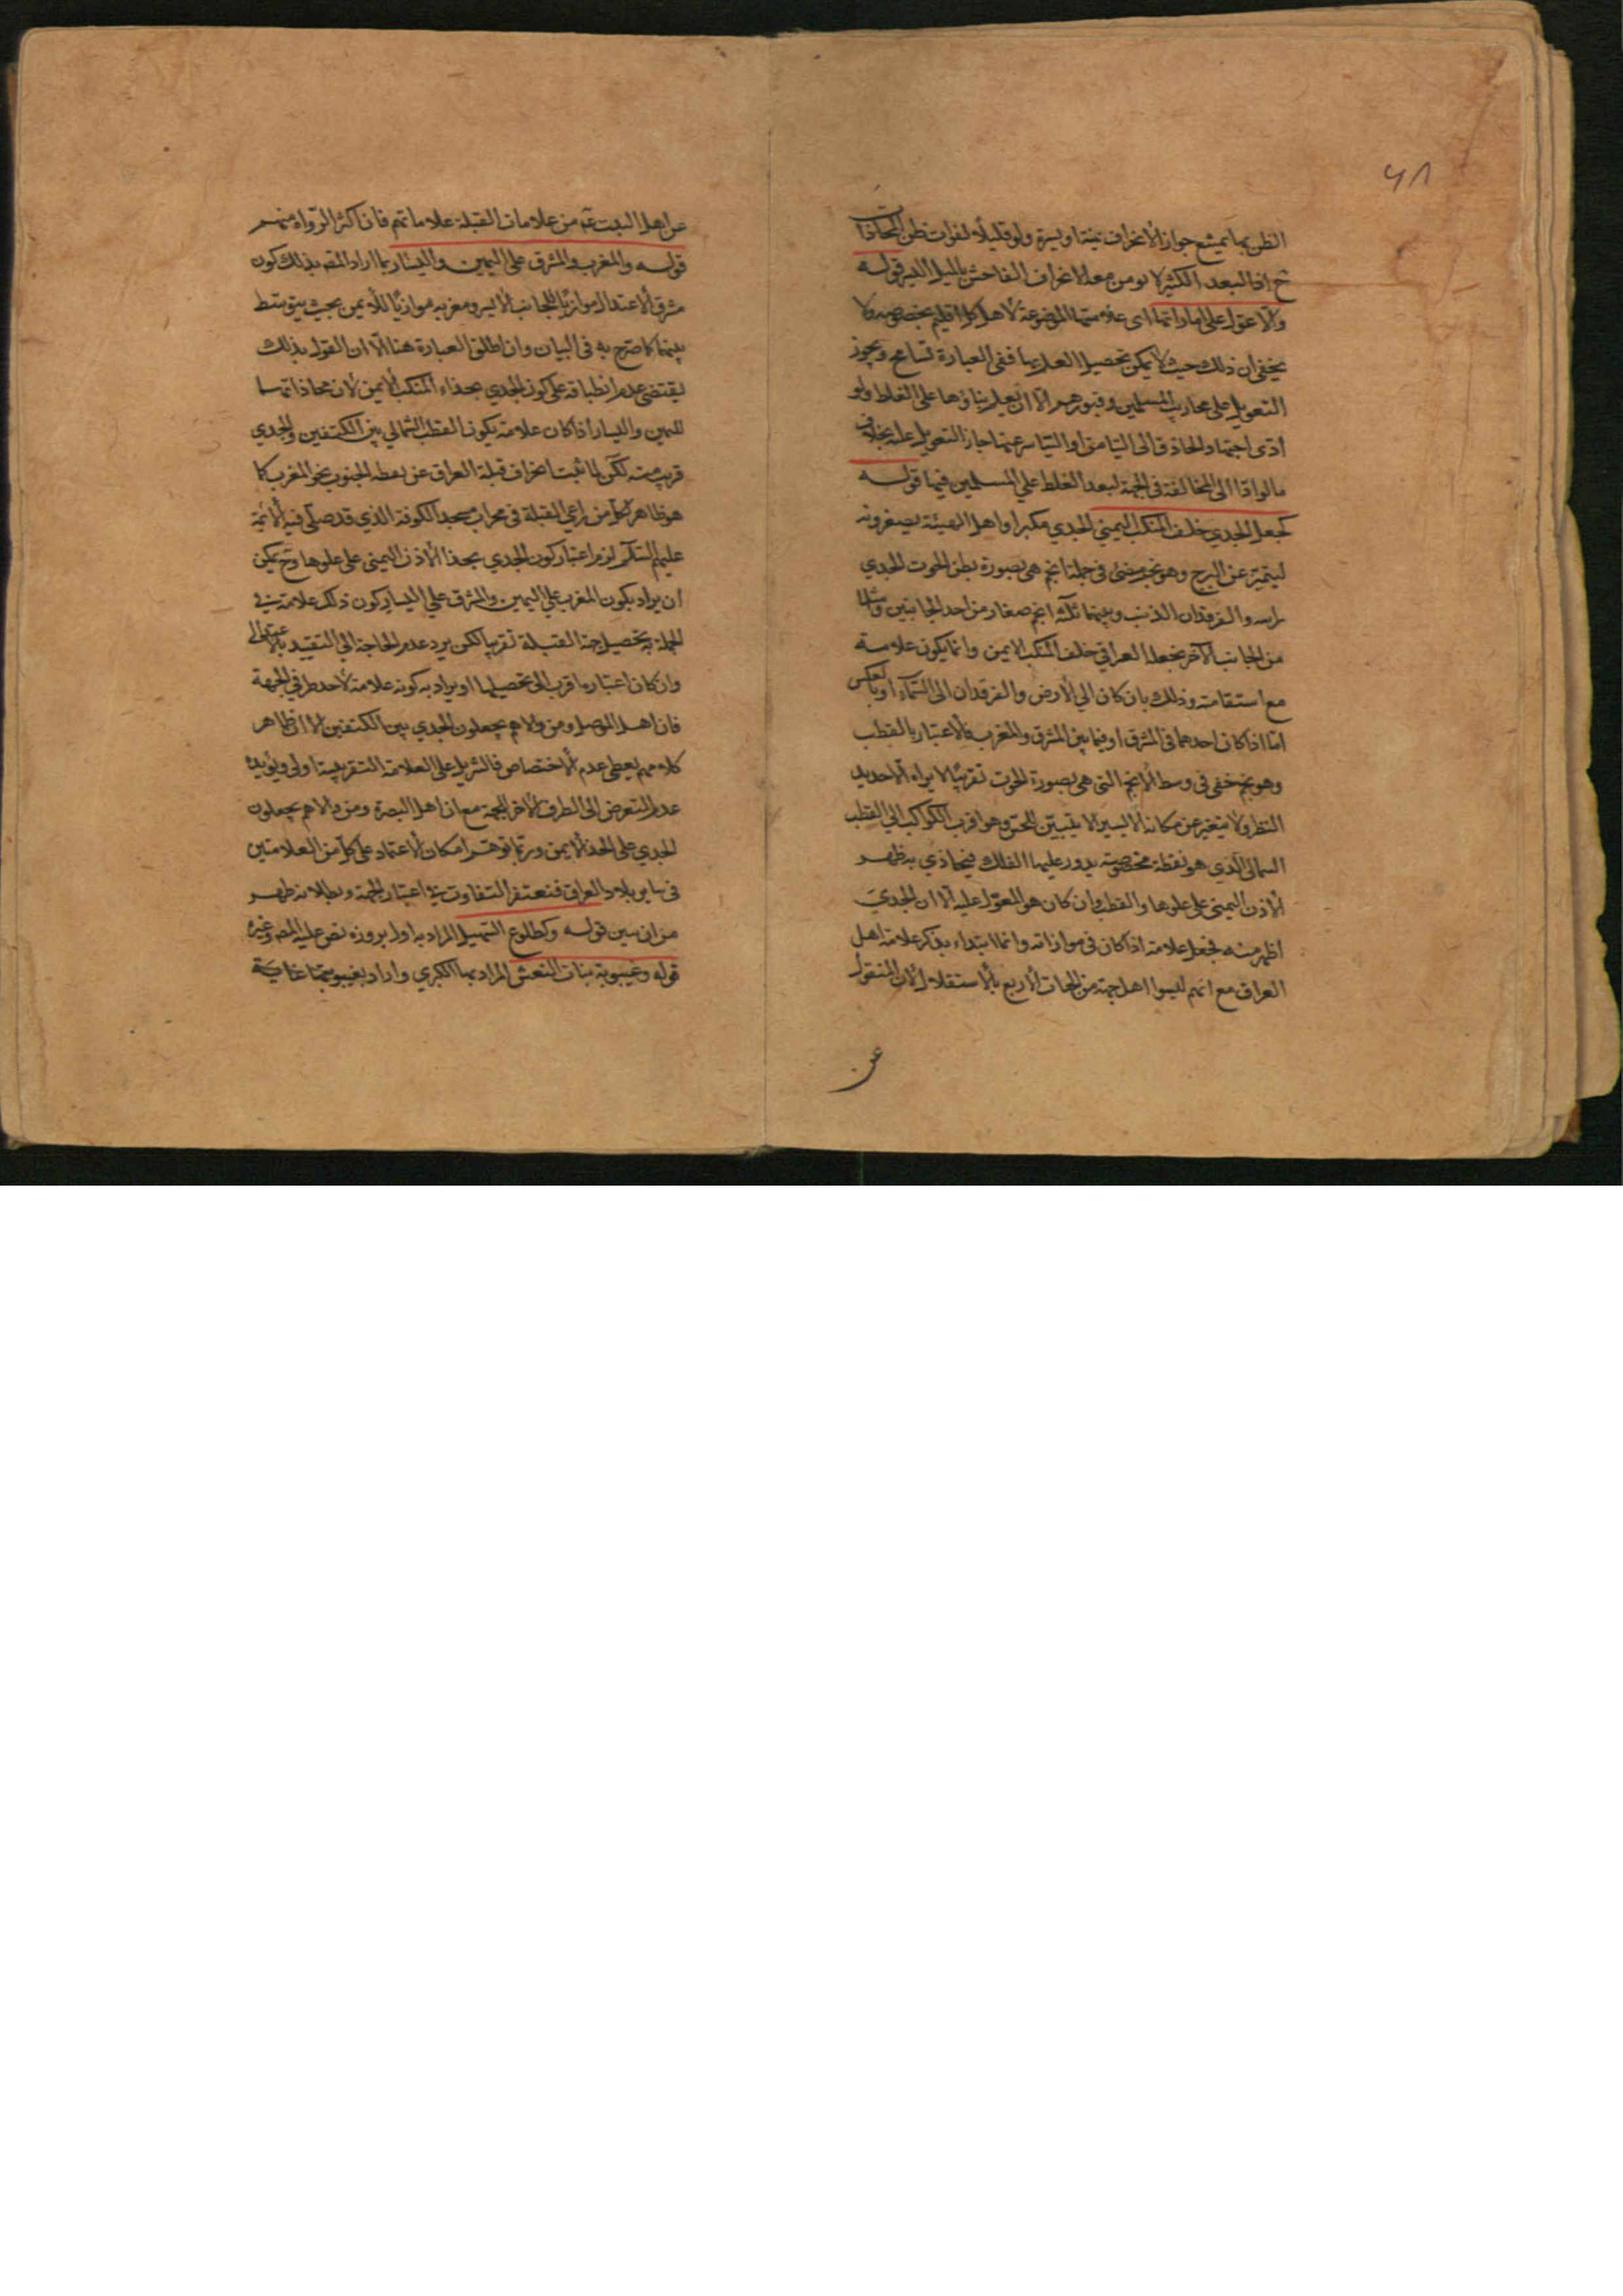 ٤٨
الظن بها يمتنع جواز الانحراف يمنة او يسرة ولو قليلا لفوات ظن المحاذاة
ح اذ البعد الكثير لا يومن معه الانحراف الفاحش بالميل اليسير قوله
والا عول على اماراتها اى علامتها الموضوعة لاهل كل اقليم بخصوصه ولا
يخفى ان ذلك حيث لا يمكن تحصيل العلم بها ففى العبارة تسامح ويجوز
التعويل على محاريب المسلمين وقبورهم الا ان يعلم بناؤها على الغلط ولو
ادى اجتهاد الحاذق الى التيامن او التياسر عنها جاز التعويل عليه بخلاف
ما لو ادا الى المخالفة فى الجهة لبعد الغلط على المسلمين فيها قوله
كجعل الجدي خلف المنكب اليمنى الجدي مكبرا واهل الهيئة يصغرونه
ليتميز عن البرج وهو نجم مضئ فى جملة انجم هى بصورة بطن الحوت الجدي
راسه والفرقدان الذنب وبينهما ثلثة انجم صغار من احد الجانبين ومثلها
من الجانب الآخر يجعله العراقي خلف المنكب الايمن وانما يكون علامة
مع استقامته وذلك بان كان الى الارض والفرقدان الى السماء او بالعكس
اما اذا كان احدهما فى المشرق او فيما بين المشرق والمغرب فالاعتبار بالقطب
وهو نجم خفى فى وسط الانجم التى هى بصورة الحوت تقريبا لا يراه الا حديد
النظر ولا يتغير عن مكانه الا يسيرا لا يتبين للحس وهو اقرب الكواكب الى القطب
الشمالى الذي هو نقطة مخصوصة يدور عليها الفلك فيحاذي به ظهر
الاذن اليمنى على علوها والقطب وان كان هو المعول عليه الا ان الجدي
اظهر منه فجعل علامة اذا كان فى موازاته وانما ابتداء بذكر علامة اهل
العراق مع انهم ليسوا اهل جهة من الجهات الاربع بالاستقلال لان المنقول
عن
عن اهل البيت عم من علامات القبلة علاماتهم فان اكثر الرواة منهم
قوله والمغرب والمشرق على اليمين واليسار بما اراد المصه بذلك كون
مشرق الاعتدال موازيا للجانب الايسر ومغربه موازيا للايمن بحيث يتوسط
بينهما كما صرح به فى البيان وان اطلق العبارة هنا الا ان القول بذلك
يقتضى عدم انطباقه على كون الجدي بحذاء المنكب الايمن لان محاذاتهما
لليمين واليسار اذا كان علامة يكون القطب الشمالي بين الكتفين والجدي
قريب منه لكن لما ثبت انحراف قبلة العراق عن نقطة الجنوب نحو المغرب كما
هو ظاهر لكل من راعي القبلة فى محراب مسجد الكوفة الذي قد صلى فيه الائمة
عليهم السلام لزم اعتبار كون الجدي بحذا الاذن اليمنى على علوها وح يمكن
ان يراد بكون المغرب على اليمين والمشرق على اليسار كون ذلك علامة في
الجملة به تحصيل جهة القبلة تقريبا لكن يرد عدم الحاجة الى التقييد بالاعتدالى
وان كان اعتباره اقرب الى تحصيلها او يراد به كونه علامة لاحد طرفي الجهة
فان اهل الموصل ومن والاهم يجعلون الجدي بين الكتفين الا ان ظاهر
كلامهم يعطى عدم الاختصاص فالتنزيل على العلامة التقريبية اولى ويؤيده
عدم التعرض الى الطرف الاخر للجهة مع ان اهل البصرة ومن والاهم يجعلون
الجدي على الخد الايمن وربما توهم امكان الاعتماد على كل من العلامتين
فى ساير بلاد العراق فتعتفر التفاوت في اعتبار الجهة وبطلانه ظهر
من ان يبين قوله وكطلوع السهيل المراد به اول بروزه نص عليه المصه وغيره
قوله وغيبوبة بنات النعش المراد بها الكبري واراد بغيبوبتها غاية